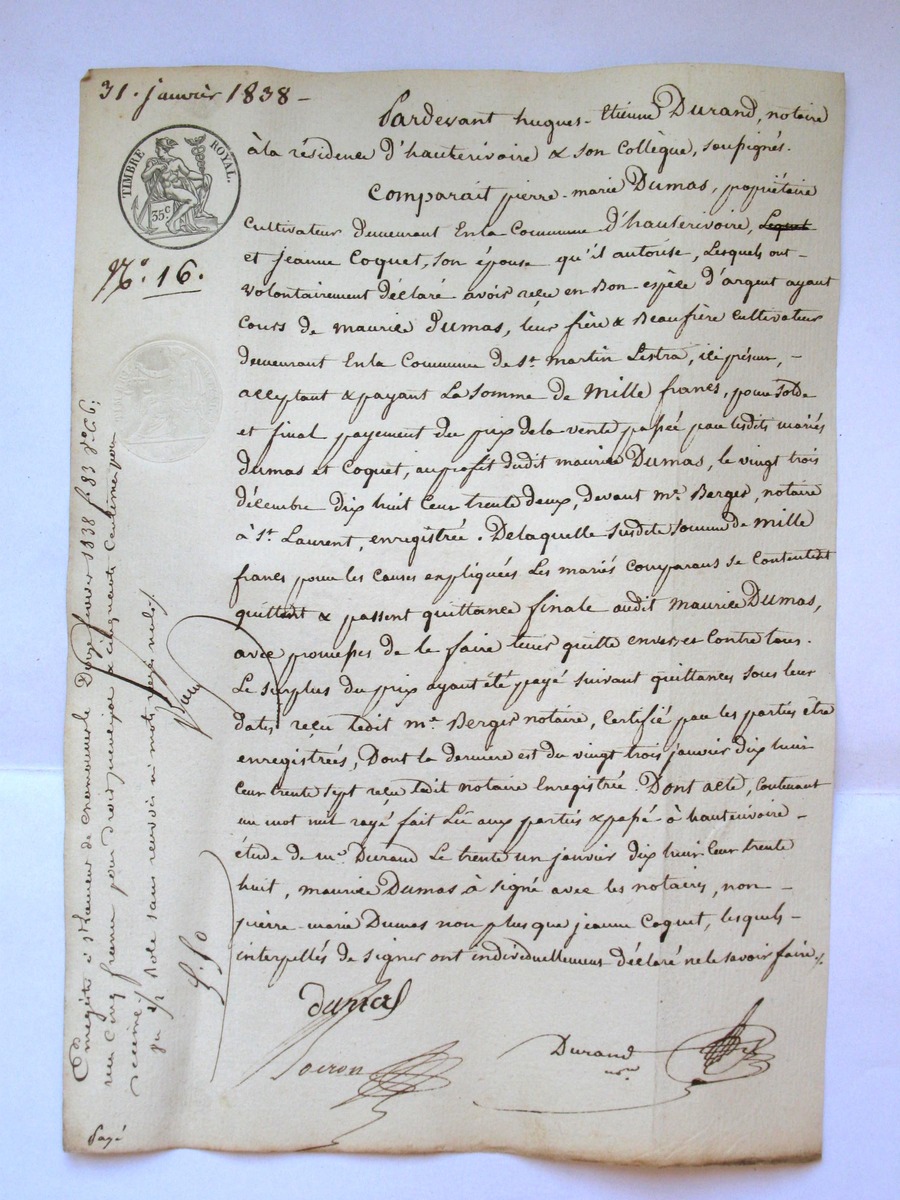 31. janvier 1838 -
TIMBRE ROYAL.
35 c
N.° 16.
Pardevant hugues-Etienne Durand, notaire
à la résidence d'hauterivoire & son Collègue, soussignés.
Comparait pierre-marie Dumas, propriétaire
Cultivateur demeurant En la Commune d'hauterivoire, Lequel
et jeanne Coquet, son épouse qu'il autorise, Lesquels ont -
volontairement déclaré avoir reçu en Bon espèce d'argent ayant
Cours de maurice Dumas, leur frère & Beaufrère Cultivateur
demeurant En la Commune de St. martin Lestra, ici présent, -
acceptant & payant La Somme de Mille francs, pour Solde
et final payement du prix de la vente passée par lesdits mariés
Dumas et Coquet, au profit dudit maurice Dumas, le vingt trois
décembre dix huit Cent trente deux, devant me. Berger, notaire
à St. Laurent, enregistrée. De laquelle susdite somme de mille
francs pour les Causes expliquées Les mariés Comparans se Contentent
quittent & passent quittance finale audit maurice Dumas,
avec promesse de le faire tenir quitte envers et Contre tous.
Le surplus du prix ayant été payé suivant quittances sous leur
dates reçu ledit me. Berger notaire, Certifié par les parties être
enregistrées, Dont la dernière est du vingt trois janvier dix huit
Cent trente sept reçu ledit notaire Enregistrée. Dont acte, Contenant
un mot nul rayé fait Lû aux parties & passé à hauterivoire -
étude de me. Durand Le trente un janvier dix huit Cent trente
huit, maurice Dumas à signé avec les notaires, non -
pierre-marie Dumas non plus que jeanne Coquet, lesquels -
interpellés de signer ont individuellement déclaré ne le savoir faire ./.
dumas
Durand
nore
Enregistré à St Laurent de chamousset le Douze février 1838 f.° 33 r.° C. 6;
reçu Cinq francs pour droit principal & cinquante Centimes pour
décime ./. Role sans renvoi ni mots rayés nuls ./.
5.50
Payé